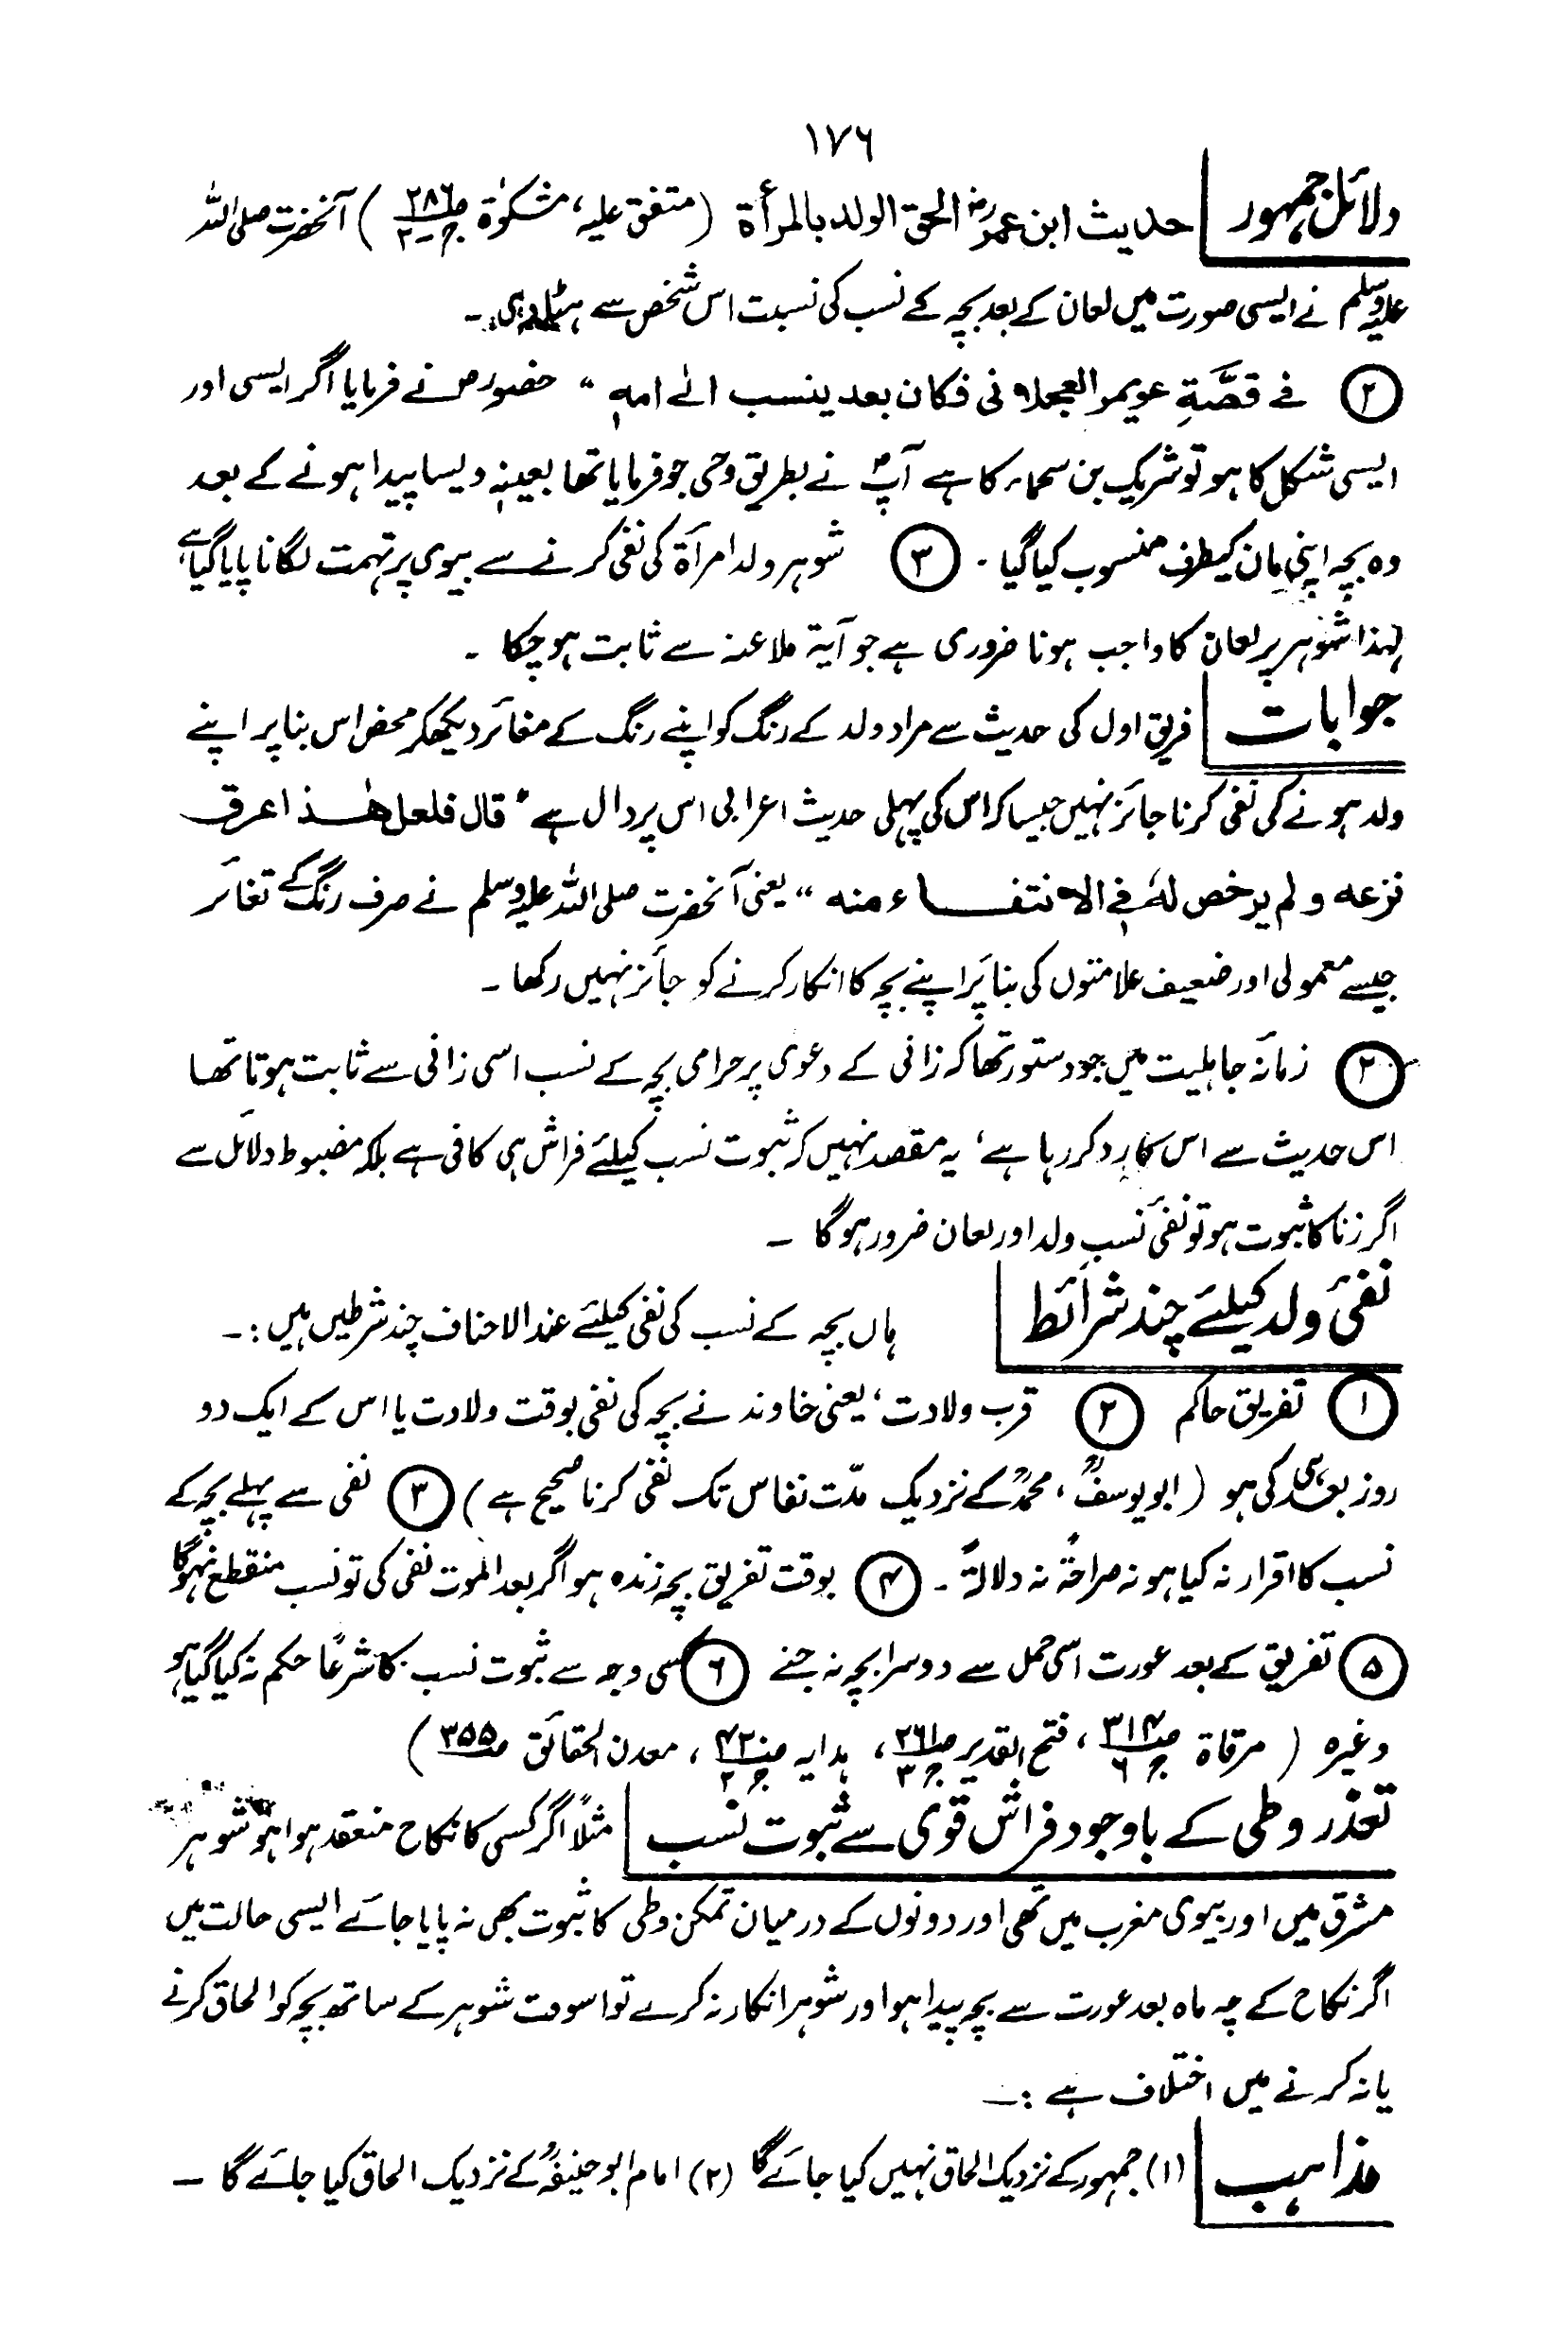 ۱۷۶
دلائل جمہور حدیث ابن عمرؓ الحق الولد بالمرأة (متفق علیہ، مشکوٰۃ ص۲۸۶ ج۲) آنحضرت صلی اللہ
علیہ وسلم نے ایسی صورت میں لعان کے بعد بچہ کے نسب کی نسبت اس شخص سے ہٹا دی ۔
(۲) فے قصَّةِ عویمر العجلانی فکان بعد ینسب الے امہ " حضورؐ نے فرمایا اگر ایسی اور
ایسی شکل کا ہو تو شریک بن سحماء کا ہے آپؐ نے بطریق وحی جو فرمایا تھا بعینہٖ ویسا پیدا ہونے کے بعد
وہ بچہ اپنی مان کیطرف منسوب کیا گیا ۔ (۳) شوہر ولد امرأة کی نفی کرنے سے بیوی پر تہمت لگانا پایا گیا ہے
لہذا شوہر پر لعان کا واجب ہونا ضروری ہے جو آیۃ ملاعنہ سے ثابت ہوچکا ۔
جوابات فریق اول کی حدیث سے مراد ولد کے رنگ کو اپنے رنگ کے مغائر دیکھکر محض اس بنا پر اپنے
ولد ہونے کی نفی کرنا جائز نہیں جیسا کہ اس کی پہلی حدیث اعرابی اس پر دال ہے " قال فلعل ھٰذا عرق
نزعه ولم یرخص لهٗ فی الانتفاء منه " یعنی آنحضرت صلی اللہ علیہ وسلم نے صرف رنگ کے تغائر
جیسے معمولی اور ضعیف علامتوں کی بنا پر اپنے بچہ کا انکار کرنے کو جائز نہیں رکھا ۔
(۲) زمانۂ جاہلیت میں جو دستور تھا کہ زانی کے دعوی پر حرامی بچہ کے نسب اسی زانی سے ثابت ہوتا تھا
اس حدیث سے اس کا رد کر رہا ہے، یہ مقصد نہیں کہ ثبوت نسب کیلئے فراش ہی کافی ہے بلکہ مضبوط دلائل سے
اگر زنا کا ثبوت ہو تو نفئ نسب ولد اور لعان ضرور ہوگا ۔
نفئ ولد کیلئے چند شرائط ہاں بچہ کے نسب کی نفی کیلئے عند الاحناف چند شرطیں ہیں :۔
(۱) تفریق حاکم (۲) قرب ولادت، یعنی خاوند نے بچہ کی نفی بوقت ولادت یا اس کے ایک دو
روز بعد ہی کی ہو (ابو یوسفؒ، محمدؒ کے نزدیک مدّت نفاس تک نفی کرنا صحیح ہے) (۳) نفی سے پہلے بچہ کے
نسب کا اقرار نہ کیا ہو نہ صراحۃً نہ دلالۃً ۔ (۴) بوقت تفریق بچہ زندہ ہو اگر بعد الموت نفی کی تو نسب منقطع نہوگا
(۵) تفریق کے بعد عورت اسی حمل سے دوسرا بچہ نہ جنے (۶) کسی وجہ سے ثبوت نسب کا شرعًا حکم نہ کیا گیا ہو
وغیرہ ( مرقاة ص۳۱۴ ج۶، فتح القدیر ص۲۶۱ ج۳، ہدایہ ص۴۲۰ ج۲، معدن الحقائق ص۳۵۵)
تعذر وطی کے باوجود فراش قوی سے ثبوت نسب مثلًا اگر کسی کا نکاح منعقد ہوا ہو شوہر
مشرق میں اور بیوی مغرب میں تھی اور دونوں کے درمیان تمکن وطی کا ثبوت بھی نہ پایا جائے ایسی حالت میں
اگر نکاح کے چھ ماہ بعد عورت سے بچہ پیدا ہوا اور شوہر انکار نہ کرے تو اسوقت شوہر کے ساتھ بچہ کو الحاق کرنے
یا نہ کرنے میں اختلاف ہے :۔
مذاہب (۱) جمہور کے نزدیک الحاق نہیں کیا جائے گا (۲) امام ابو حنیفہؒ کے نزدیک الحاق کیا جائے گا ۔